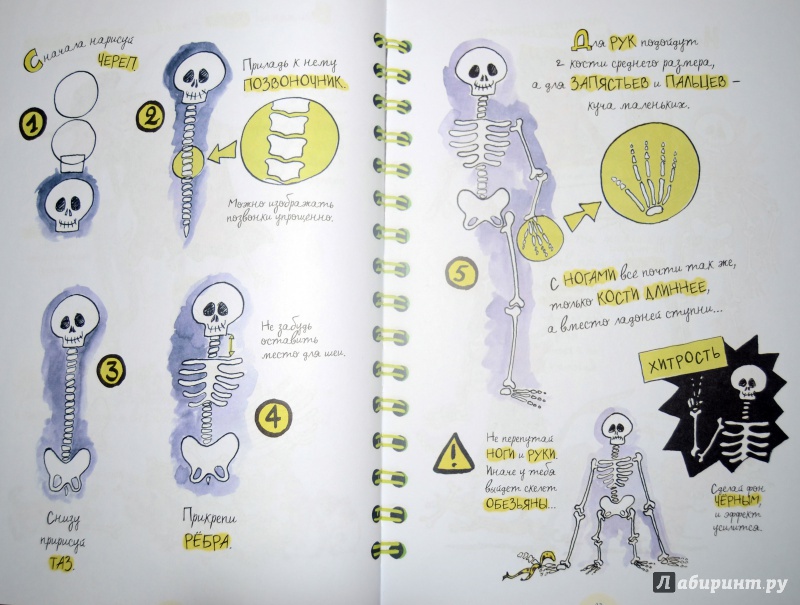 Сначала нарисуй
ЧЕРЕП.
1
2
Приладь к нему
ПОЗВОНОЧНИК.
Можно изображать
позвонки упрощенно.
3
Снизу
пририсуй
ТАЗ.
Не забудь
оставить
место для шеи.
4
Прикрепи
РЁБРА.
Для РУК подойдут
2 кости среднего размера,
а для ЗАПЯСТЬЕВ и ПАЛЬЦЕВ –
куча маленьких.
5
С НОГАМИ все почти так же,
только КОСТИ ДЛИННЕЕ,
а вместо ладоней ступни...
!
Не перепутай
НОГИ и РУКИ.
Иначе у тебя
выйдет скелет
ОБЕЗЬЯНЫ...
ХИТРОСТЬ
Сделай фон
ЧЕРНЫМ,
и эффект
усилится.
Лабиринт.ру